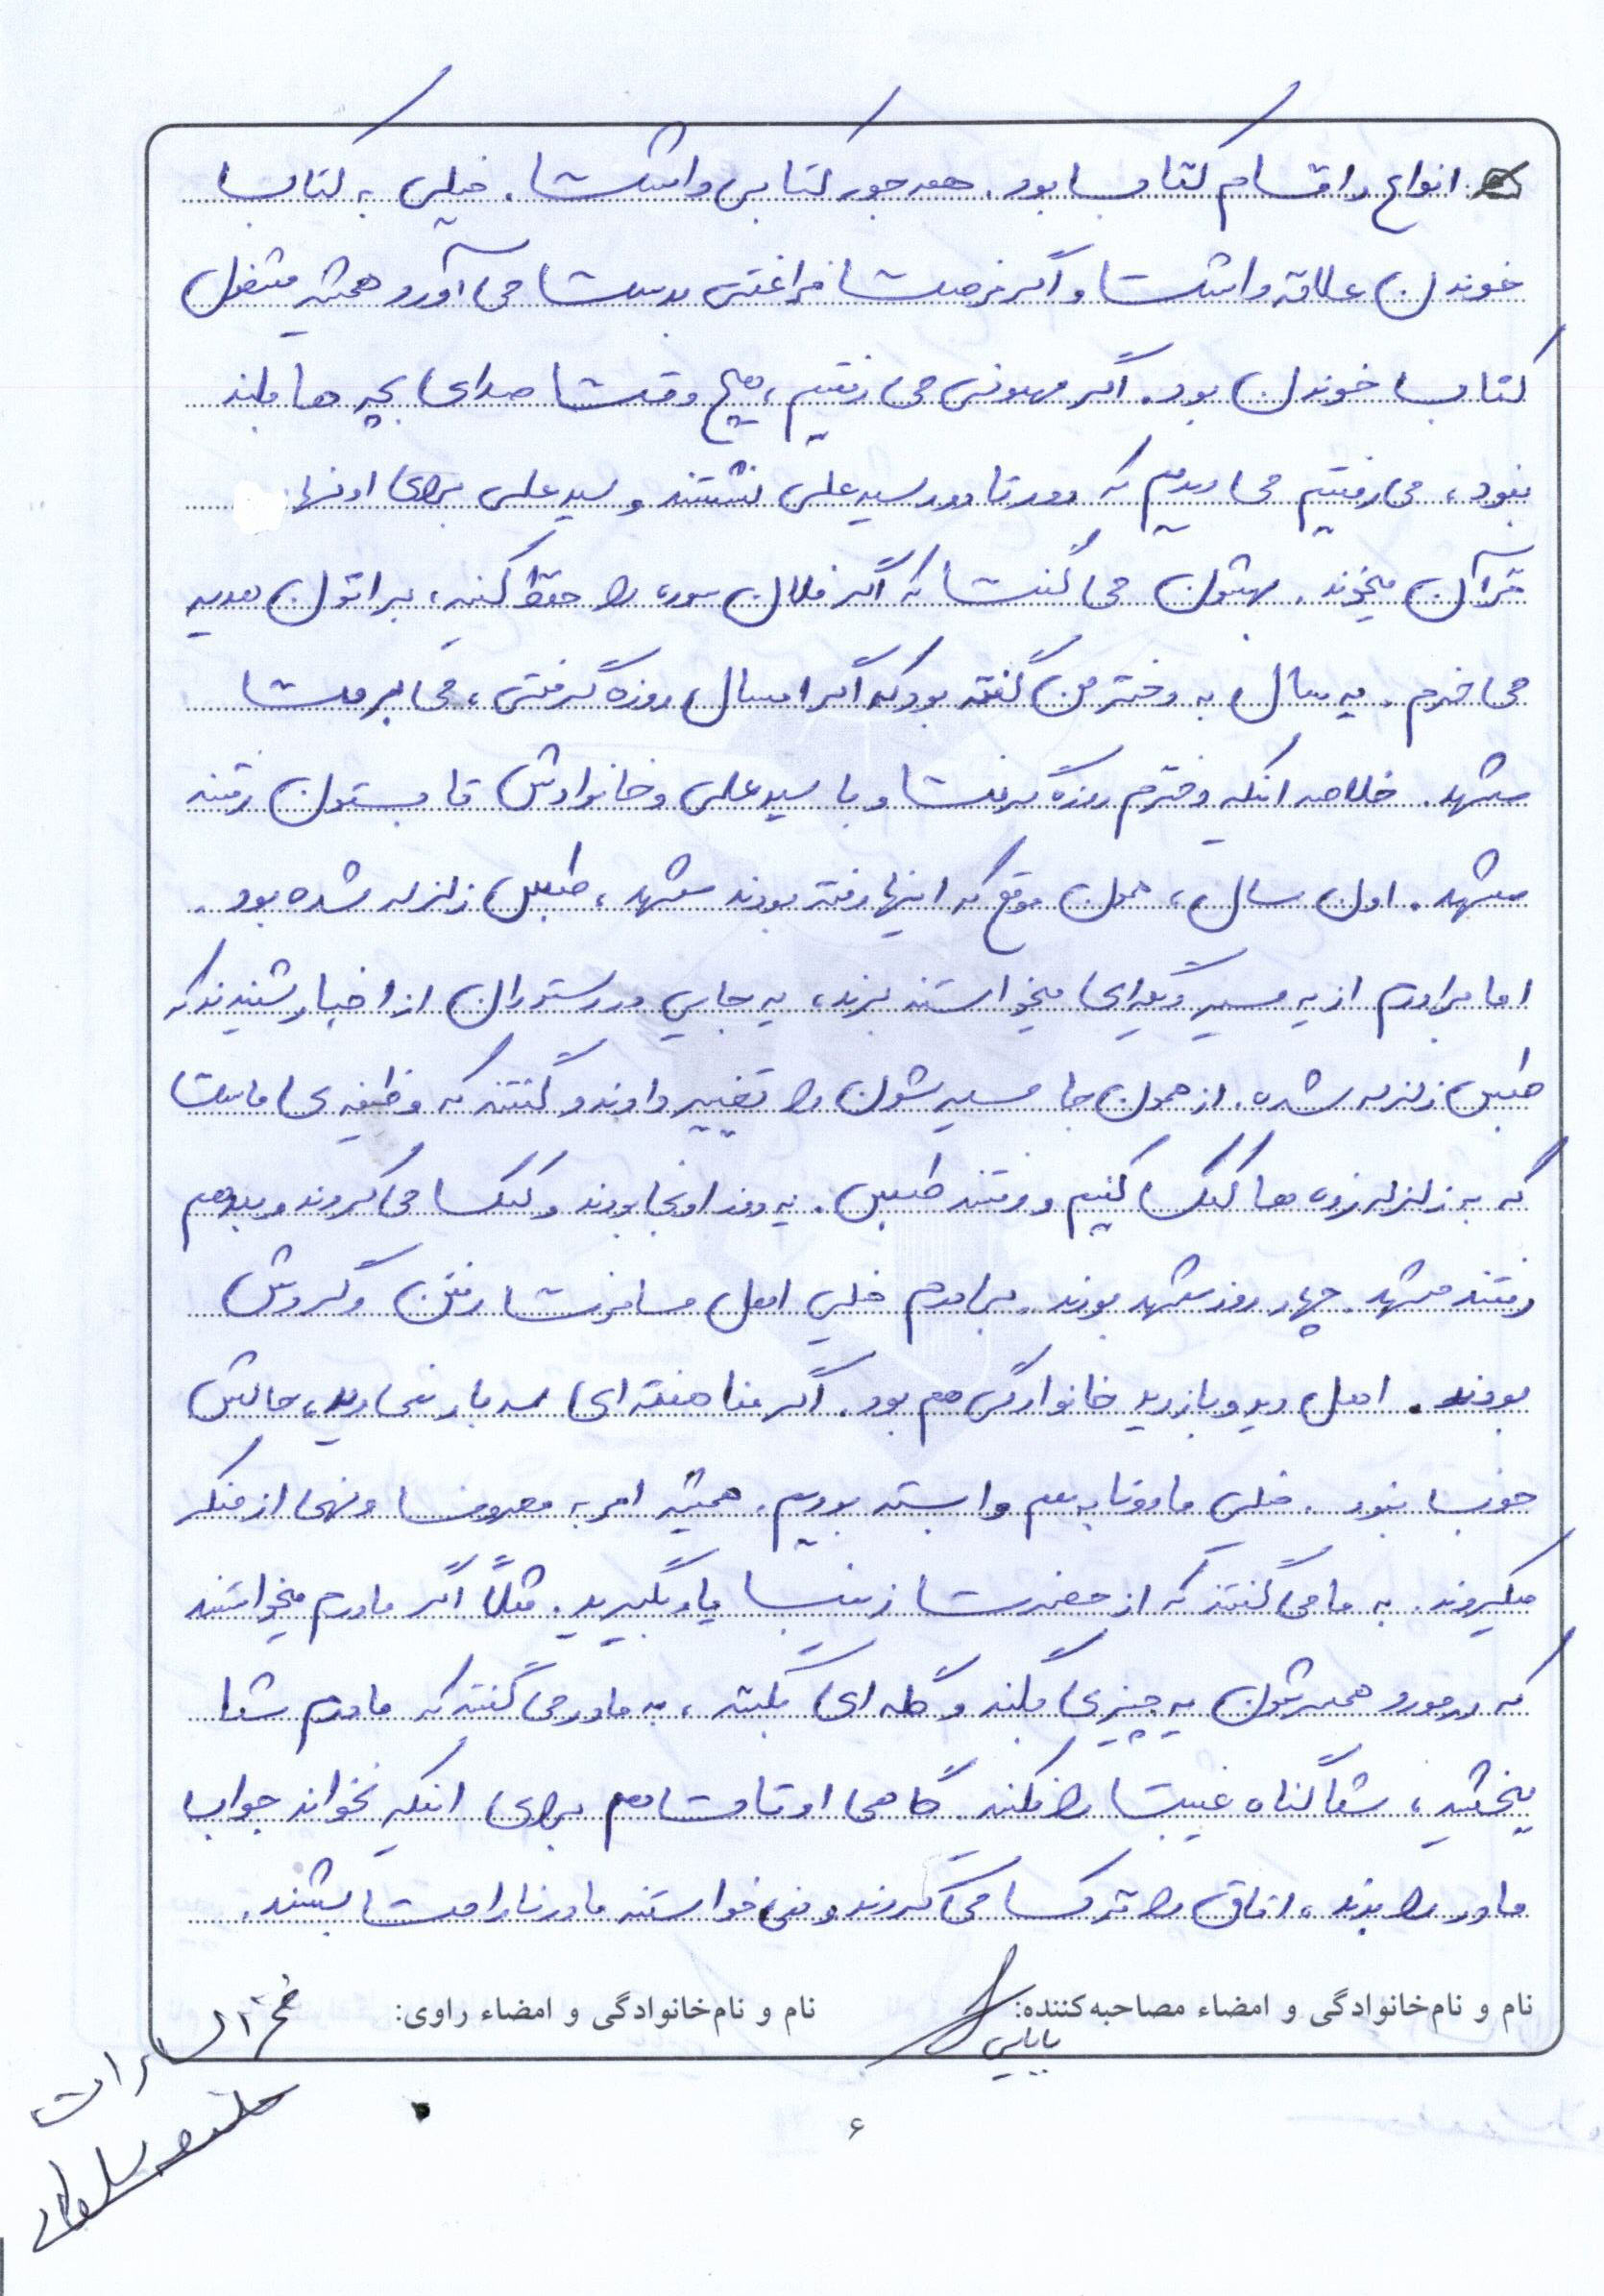 انواع و اقسام کتاب بود. همه جور کتابی داشت. خیلی به کتاب
خوندن علاقه داشت و اگر فرصت فراغتی بدست می آورد همیشه مشغول
کتاب خوندن بود. اگر مهمونی می رفتیم، هیچ وقت صدای بچه ها بلند
نبود، می رفتیم می دیدیم که دور تا دور سید علی نشستند و سید علی برای اونها
قرآن میخوند. بهشون می گفت که اگر فلان سوره را حفظ کنید، براتون هدیه
می خرم. یه سال به دختر من گفته بود که اگر امسال روزه گرفتی، می برمت
مشهد. خلاصه اینکه دخترم روزه گرفت و با سید علی و خانوادش تابستون رفتند
مشهد. اون سال، همون موقع که اینها رفته بودند مشهد، طبس زلزله شده بود.
اما برادرم از یه مسیر دیگه ای میخواستند برند، یه جایی در رستوران از اخبار شنیدند که
طبس زلزله شده. از همون جا مسیرشون را تغییر دادند و گفتند که وظیفه ی ماست
که به زلزله زده ها کمک کنیم و رفتند طبس. یه روز اونجا بودند و کمک می کردند و بعد هم
رفتند مشهد. چهار روز مشهد بودند. برادرم خیلی اهل مسافرت رفتن و گردش
بودند. اهل دید و بازدید خانوادگی هم بود. اگر منا هفته ای سه بار نمی دید، حالش
خوب نبود. خیلی ما دوتا به هم وابسته بودیم. همیشه امر به معروف و نهی از منکر
میکردند. به ما می گفتند که از حضرت زینب یاد بگیرید. مثلاً اگر مادرم میخواستند
که در مورد همسرشون یه چیزی بگند و گله ای بکنند، به مادر می گفتند که مادرم شما
ببخشید، شما گناه غیبت را نکنید. گاهی اوقات هم برای اینکه نخواند جواب
مادر را بدند، اتاق را ترک می کردند و نمی خواستند مادر ناراحت بشند.
نام و نام‌خانوادگی و امضاء مصاحبه‌کننده: نام و نام‌خانوادگی و امضاء راوی:
بابایی
فخرالسادات
۶